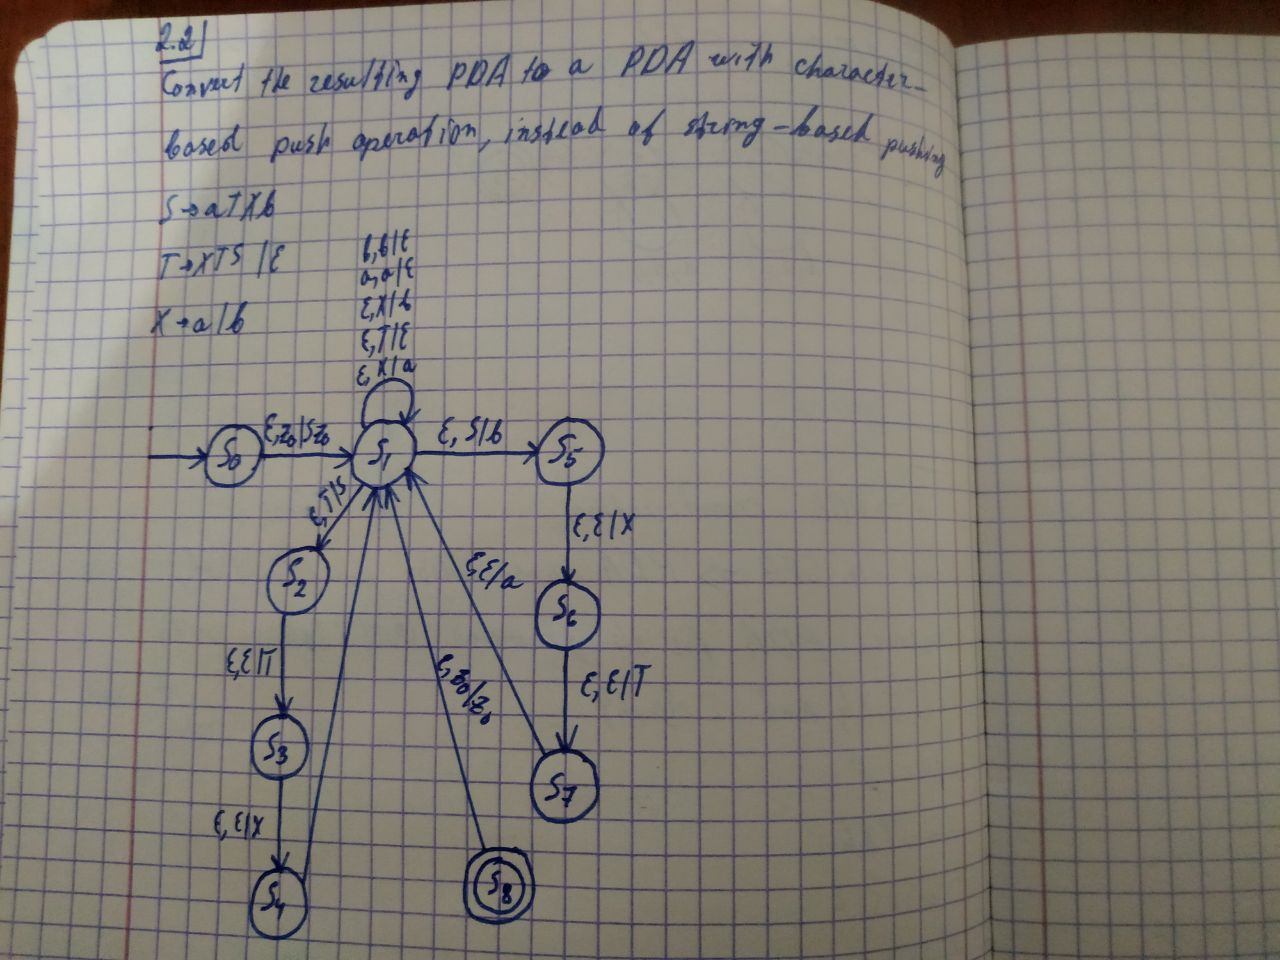 2.2
Convert the resulting PDA to a PDA with character-
based push operation, instead of string-based pushing
S→aTXb
T→XTS | ε
X→a|b
b,b|ε
a,a|ε
ε,X|b
ε,T|ε
ε,X|a
S₀
ε,z₀|Sz₀
S₁
ε, S|b
S₅
ε,T|S
ε,ε|X
S₂
ε,ε|a
S₆
ε,ε|T
ε,z₀|z₀
ε,ε|T
S₃
S₇
ε,ε|X
S₄
S₈